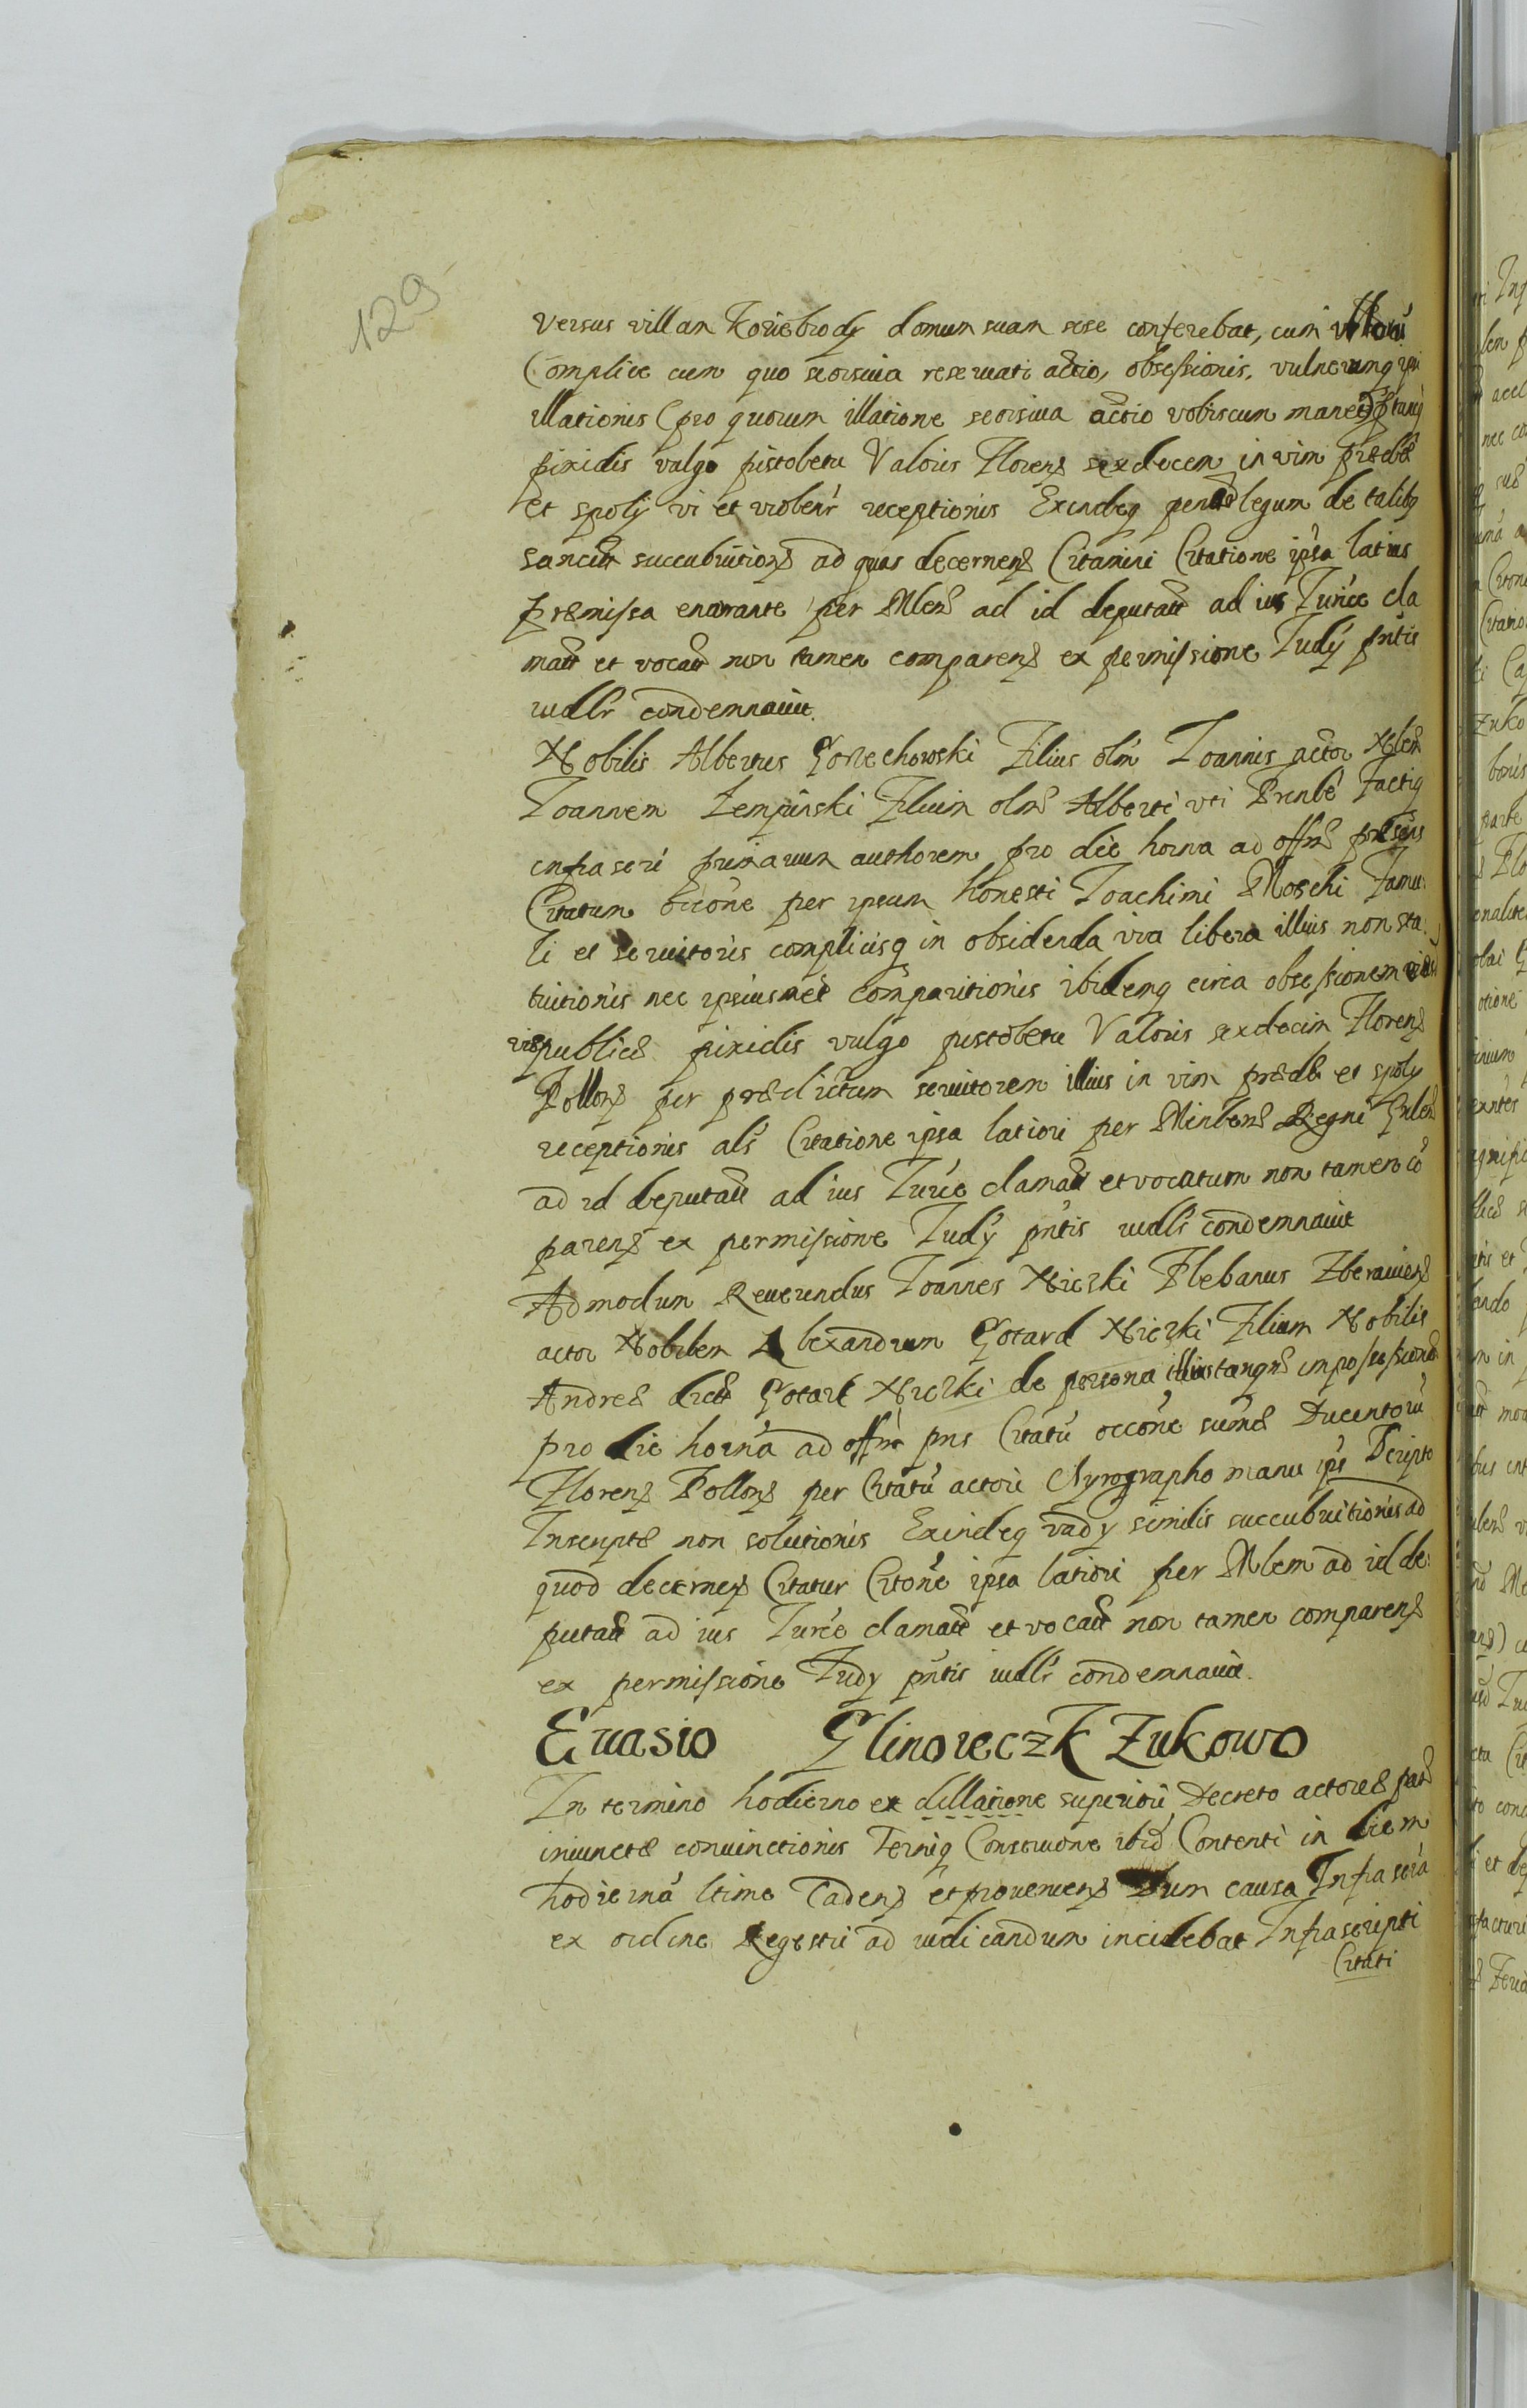 129
versus villam Koziebrody domum suam sese conferebat, cum
Complice cum quo seorsiua reseruati actio, obsessionis, vulnerumq ipsi
illationis (pro quorum illatione seorsiua actio vobiscum manet)
pixidis vulgo pistoletu Valoris Florenṣ sexdecem in vim prædæ
et spolÿ vi et violenť receptionis Exindeq penaꝝ legum de talibꝫ
sancitaꝝ succubuitionꝫ ad quas decernenꝫ Citamini Citatione ipsa latius
præmissa enarrante per Mlem ad id deputatū ad ius Turće cla
matū et vocatū non tamen comparenꝫ ex permissione Iudÿ pntis
iudlr condemnauit.
Nobilis Albertus Gorzechowski Filius olim Ioannis actor Nblem
Ioannem Zempinski Filium olim Alberti vti Prnlé Factiq
infrascri primarium authorem pro die horna ad offm præsens
Citatum occone per ipsum honesti Ioachimi Moschi Famu
li et seruitoris complicisq in obsidenda via libera illius non sta
tuitionis nec ipsiusmet comparitionis ibidemq circa obsessionem
viæ publicæ pixidis vulgo pistoletu Valoris sexdecim Florenꝫ
Pollonꝫ per prædictum seruitorem illius in vim prædæ et spolÿ
receptionis als Citatione ipsa latiori per Minlem Regni Gnlem
ad id deputatū ad ius Turće clamatū et vocatum non tamen cō
parenꝫ ex permissione Iudÿ pntis iudlr condemnauit
Admodum Reuerendus Ioannes Niczki Plebanus Zberauienꝫ
actor Nobilem Alexandrum Gotard Niczki Filium Nobilis
Andreæ dicti Gotard Niczki de persona illius tanqꝫ impossessionaꝫ
pro die horna ad offm pns Citatū occone sumæ Ducentorū
Florenꝫ Pollonꝫ per Citatū actori Chyrographo manu ipꝫ Scripto
Inscriptæ non solutionis Exindeq vadÿ similis succubuitionis ad
quod decernenꝫ Citatur Citone ipsa latiori per Mlem ad id de
putatū ad ius Turće clamatū et vocatū non tamen comparenꝫ
ex permissione Iudÿ pntis iudlr condemnauit.
Euasio Glinoieczk Zukowo
In termino hodierno ex dillatione superiori Decreto actoreæ parti
iniunctæ conuinctionis Terniq Conseruone ibid Contenti in diem
hodierna ltime Cadenꝫ et prouenienꝫ Dum causa Infrascra
ex ordine Regestri ad iudicandum incidebat Infrascripti
Citati